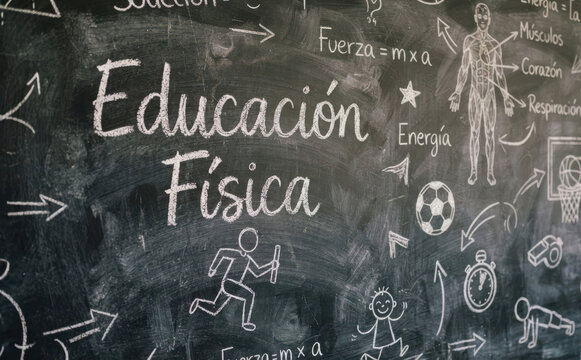 Energía =
Fuerza = m x a
Músculos
Corazón
Respiración
Educación
Física
Energía
Fuerza = m x a